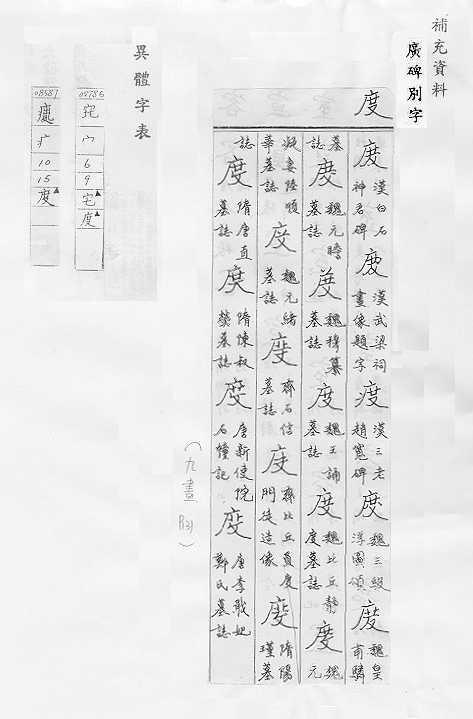 補充資料
廣碑別字
度
度 漢白石神君碑
度 漢武梁祠畫像題字
度 漢三老趙寬碑
度 魏三級浮圖頌
度 魏皇甫驎墓誌
度 魏元瞻墓誌
度 魏穆纂墓誌
度 魏王誦墓誌
度 魏比丘靜度墓誌
度 魏元凝妻陸順華墓誌
度 魏元緒墓誌
度 齊石信墓誌
度 齊比丘員度門徒造像
度 隋陽瑾墓誌
度 隋唐直墓誌
度 隋陳叔榮墓誌
度 唐新使院石幢記
度 唐李戢妃鄭氏墓誌
(九畫 P131)
異體字表
08786
宅
宀
6
9
宅▲
度▲
08587
疒
10
15
度▲